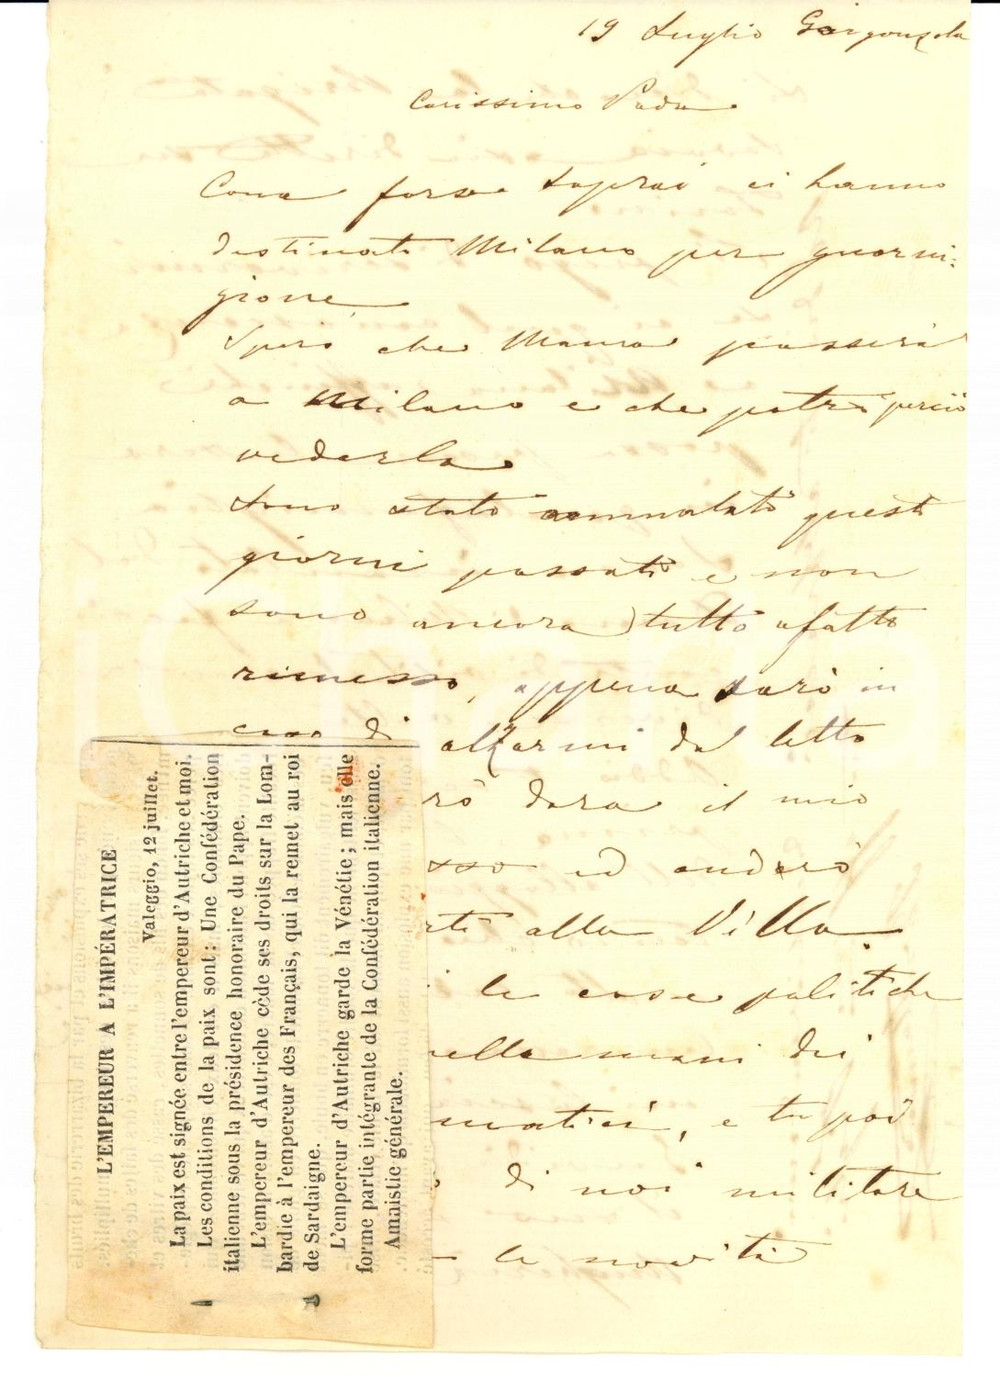 19 Luglio Gorgonzola
Carissimo Padre
Come forse saprai ci hanno
destinati Milano per guarni:
gione
Spero che Mama passerà
a Milano e che potrò perciò
vederla
Sono stato ammalato questi
giorni passati e non
sono ancora tutto afatto
rimesso, appena sarò in
caso di alzarmi dal letto
rò dara il mio
sso ed anderò
rti alla Villa.
le cose politiche
nelle mani dei
matici, e tu poi
di noi militare
le novità
L'EMPEREUR A L'IMPÉRATRICE
Valeggio, 12 juillet.
La paix est signée entre l'empereur d'Autriche et moi.
Les conditions de la paix sont : Une Confédération
italienne sous la présidence honoraire du Pape.
L'empereur d'Autriche cède ses droits sur la Lom-
bardie à l'empereur des Français, qui la remet au roi
de Sardaigne.
L'empereur d'Autriche garde la Vénétie ; mais elle
forme partie intégrante de la Confédération italienne.
Amnistie générale.